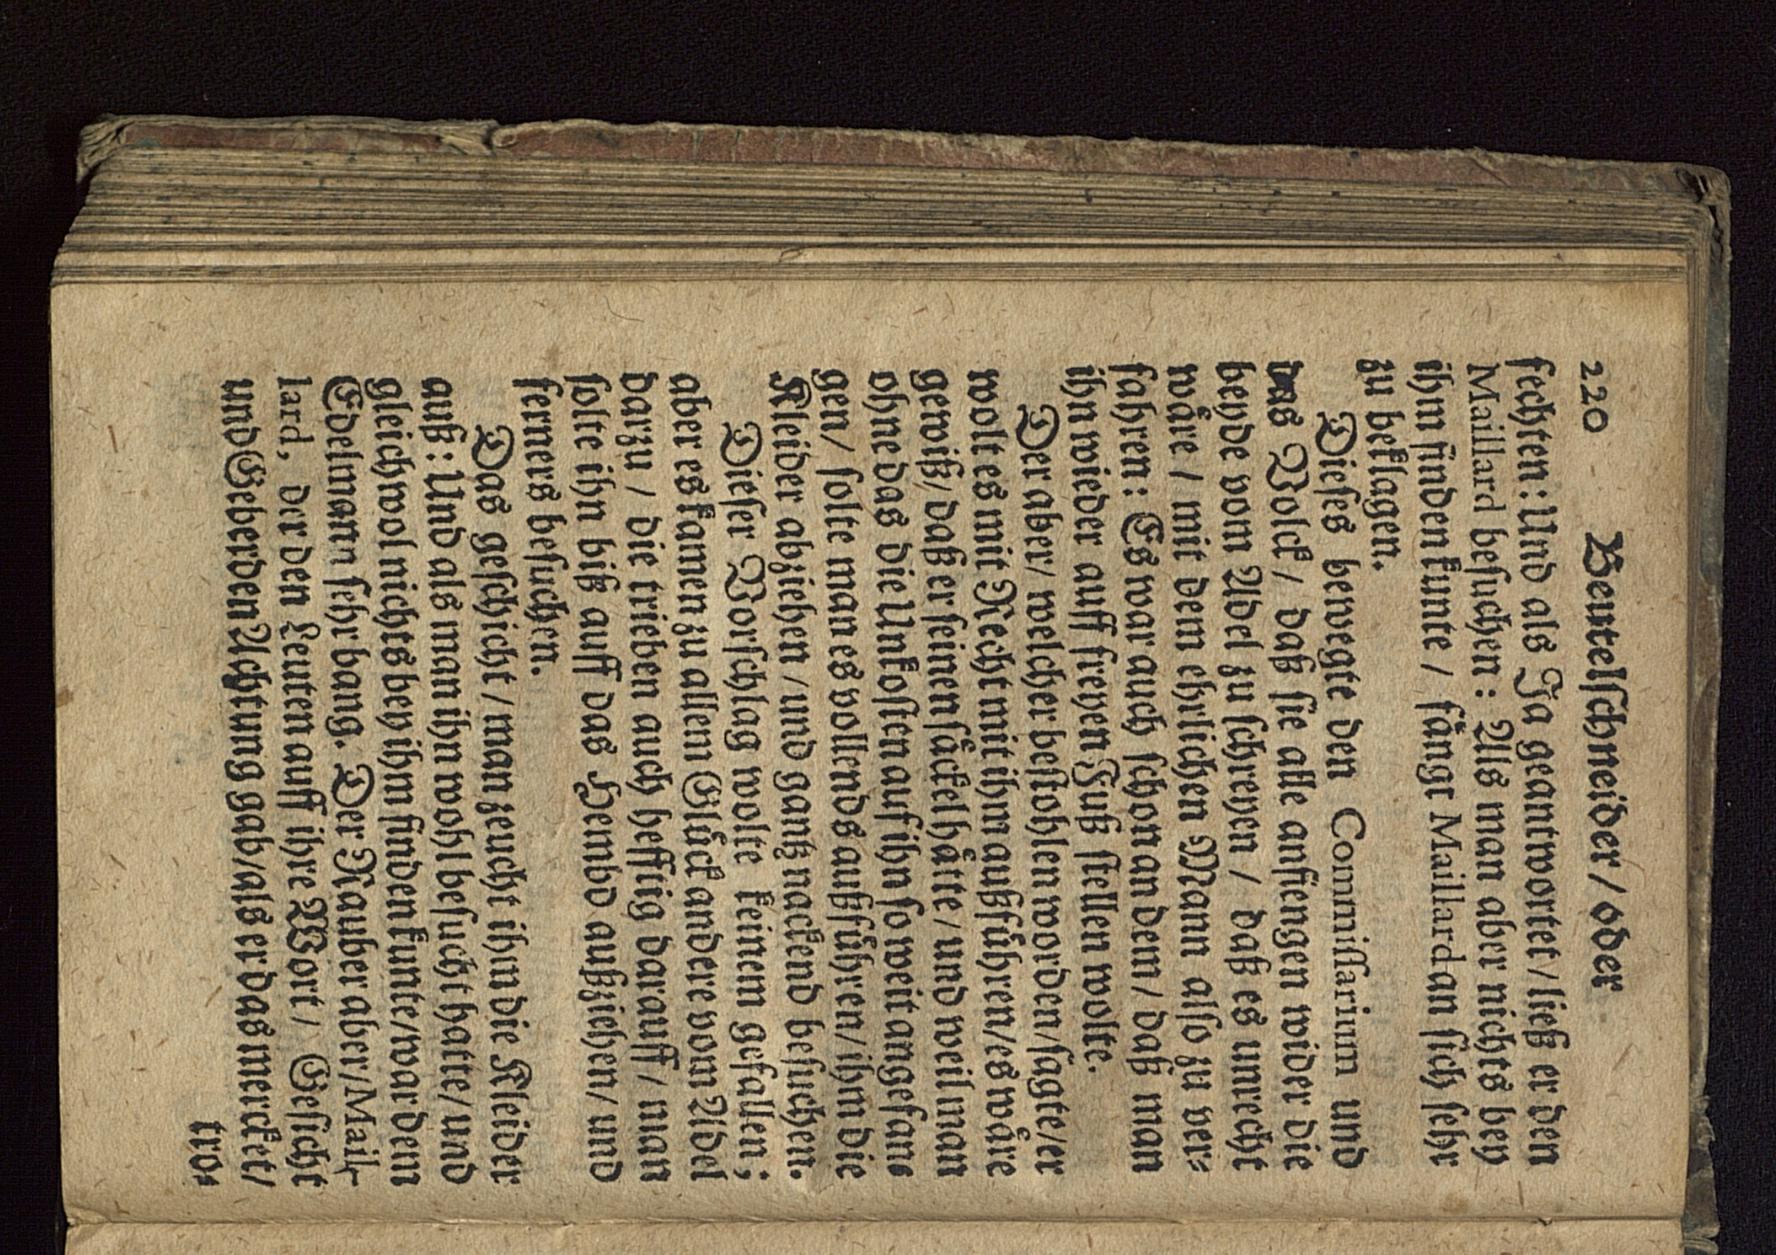 220 Beutelſchneider / oder
fechten: Und als Ja geantwortet / ließ er den
Maillard beſuchen: Als man aber nichts bey
ihm finden kunte / fängt Maillard an ſich ſehr
zu beklagen.
Dieſes bewegte den Commiſſarium und
das Volck / daß ſie alle anfiengen wider die
beyde vom Adel zu ſchreyen / daß es unrecht
wäre / mit dem ehrlichen Mann alſo zu ver-
fahren: Es war auch ſchon an dem / daß man
ihn wieder auff freyen Fuß ſtellen wolte.
Der aber / welcher beſtohlen worden / ſagte / er
wolt es mit Recht mit ihm außführen / es wäre
gewiß / daß er ſeinen ſäckel hätte / und weil man
ohne das die Unkoſten auf ihn ſo weit angefan-
gen / ſolte man es vollends außführen / ihm die
Kleider abziehen / und gantz nackend beſuchen.
Dieſer Vorſchlag wolte keinem gefallen;
aber es kamen zu allem Glück andere vom Adel
darzu / die trieben auch hefftig darauff / man
ſolte ihn biß auff das Hembd außziehen / und
ferners beſuchen.
Das geſchicht / man zeucht ihm die Kleider
auß: Und als man ihn wohl beſucht hatte / und
gleichwol nichts bey ihm finden kunte / ward dem
Edelmann ſehr bang. Der Rauber aber / Mail-
lard, der den Leuten auff ihre Wort / Geſicht
und Geberden Achtung gab / als er das mercket /
tro-